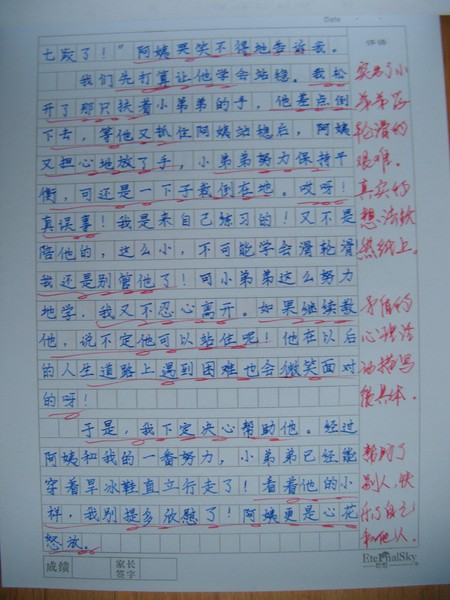 Date
评语
七岁了！”阿姨哭笑不得地告诉我。
我们先打算让他学会站稳。我松
开了那只扶着小弟弟的手，他差点倒
下去，等他又抓住阿姨站稳后，阿姨
又担心地放了手，小弟弟努力保持平
衡，可还是一下子栽倒在地。哎呀！
真误事！我是来自己练习的！又不是
陪他的，这么小，不可能学会滑轮滑
我还是别管他了！可小弟弟这么努力
地学，我又不忍心离开。如果继续教
他，说不定他可以站住呢！他在以后
的人生道路上遇到困难也会微笑面对
的呀！
于是，我下定决心帮助他。经过
阿姨和我的一番努力，小弟弟已经能
穿着旱冰鞋直立行走了！看着他的小
样，我别提多欣慰了！阿姨更是心花
怒放。
突出了小
弟弟学
轮滑的
艰难。
真实的
想法跃
然纸上。
矛盾的
心理活
动描写
很具体。
帮助了
别人，快
乐了自己
和他人。
成绩
家长
签字
EternalSky